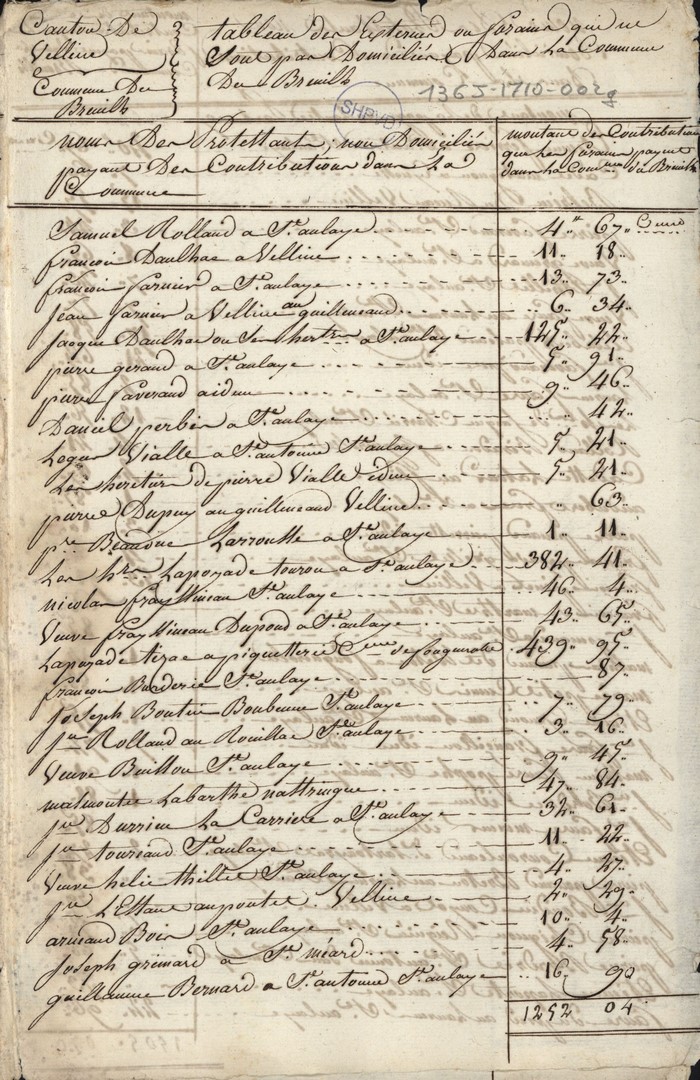 Canton De
Velline
Commune De
Breuilh
tableau des Externes ou forains qui ne
Sont pas Domiciliés Dans La Commune
De Breuilh
1365-1710-002g
SHPVD
noms Des Protestants, non Domiciliés
payant Des Contributions dans La d
Commune
montant des Contributions
que les forains payent
dans la Com.ne du Breuilh
Samuel Rolland a St. aulaye 4.. 67..
françois Daulhac a Velline 11.. 18..
françois garnier a St. aulaye 13.. 73..
jean garnier a Velline au guilleneaud 6.. 34..
jacque Daulhac ou Ses hertrs a St. aulaye 125.. 22..
pierre geraud a St. aulaye 5.. 91..
pierre faveraud aidem 9.. 46..
Daniel perbin a St. aulaye 42..
Loger Vialle a St. antoine St. aulaye 5.. 21..
Les heretiers de pierre Vialle idem 5.. 21..
pierre Dupuy au guilleneaud Velline 63..
pre. Beaudue Larroutte a St. aulaye 1.. 11..
Les hrs Lapoyade tourou a St. aulaye 382.. 41..
nicolas frayssineau St. aulaye 46.. 4..
Veuve frayssineau Dupond a St. aulaye 43.. 65..
Lapoyade tizac a piquetterie 439.. 95..
françois Barderie St. aulaye 87..
joseph Boutin Boubenne St. aulaye 7.. 79..
jn Rolland au Rouilhac St. aulaye 3.. 16..
Veuve Buisson St. aulaye 9.. 45..
malmontet Labarthe nattringue 47.. 84..
jn Durrieu La Carriere a St. aulaye 32.. 61..
jn touriaud St. aulaye 11.. 22..
Veuve helie thillet St. aulaye 4.. 27..
jn L'Ettane au poutet Velline 2.. 29..
armand Bois St. aulaye 10.. 4..
joseph grimard a St. méard 4.. 58..
guillaume Bernard a St. antoine St. aulaye 16.. 90
1252 04